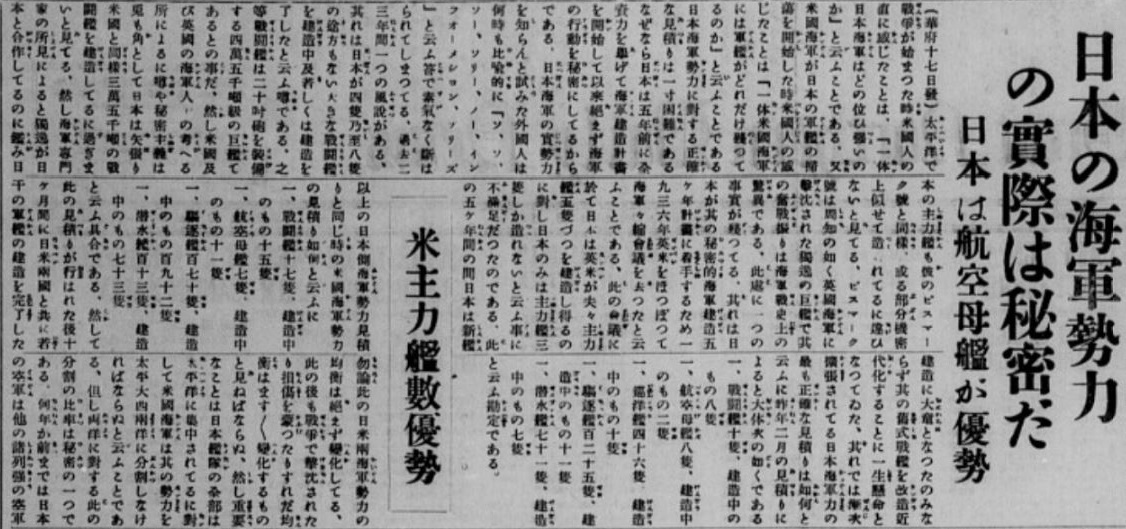 日本の海軍勢力
の實際は秘密だ
日本は航空母艦が優勢
(華府十七日發)太平洋で
戰爭が始まつた時米國人の
直に感じたことは、「一体
日本海軍はどの位ゐ強いの
か」と云ふことである。又
米國海軍が日本の軍艦の掃
蕩を開始した時米國人の感
じたことは「一体米國海軍
には軍艦がどれだけ殘つて
るのか」と云ふことである
日本海軍勢力に對する正確
な見積りは一寸困難である
なぜなら日本は五年前に全
資力を擧げて海軍建造計畫
を開始して以來絶まず海軍
の行動を秘密にしてるから
である。日本海軍の實勢力
を知らんと試みた外國人は
何時も比喩的に「ソ、ソ、
ソー、ソリー、ノー、イン
フォーメシヨン、プリーズ
」と云ふ答で素氣なく斷は
られてしまつてる、過去二
三年間一つの風說がある、
其れは日本が四隻乃至八隻
の途方もない大きな戰鬪艦
を建造及若しくは建造を完
了したと云ふ噂である。之
等戰鬪艦は二十吋砲を裝備
する四萬五千噸級の巨艦で
あるとの事だ。然し米國及
び英國の海軍人の考へる
所によるに噂や秘密主義は
兎も角として日本は矢張り
米國と同樣三萬五千噸の戰
鬪艦を建造してるに過ぎま
いと見てる。然し海軍專門
家の所見によると獨逸が日
本と合作してるのに鑑み日
本の主力艦も彼のビスマー
ク號と同樣、或る部分機密
上似せて造られてるに違ひ
ないと見てる。ビスマーク
號は周知の如く英國海軍に
擊沈された獨逸の巨艦で其
の奮戰振りは海軍戰史上の
驚異である。此處に一つの
事實が殘つてる。其れは日
本が其の秘密的海軍建造五
ケ年計畫に着手するため一
九三六年英米をほつぽつて
海軍々縮會議を去つたと云
ふことである、此の會議に
於て日本は英米が夫々主力
艦五隻づつを建造し得るの
に對し日本のみは主力艦三
隻しか造れないと云ふ事に
不滿足だつたのである。此
の五ケ年間の間日本は新艦
建造に大童となつたのみな
らず其の舊式戰艦を改造近
代化することに一生懸命と
なつてゐた。其れでは漸次
擴張されてる日本海軍力の
最も正確な見積りは如何と
云ふに昨年二月の見積りに
よると大体次の如くである
一、戰鬪艦十隻、建造中の
もの八隻
一、航空母艦八隻、建造中
のもの二隻
一、巡洋艦四十六隻、建造
中のもの十隻
一、驅逐艦百二十五隻、建
造中のもの十一隻
一、潜水艦七十一隻、建造
中のもの七隻
と云ふ勘定である。
米主力艦數優勢
以上の日本側海軍勢力見積
りと同じ時の米國海軍勢力
の見積り如何と云ふに
一、戰鬪艦十七隻、建造中
のもの十五隻
一、航空母艦七隻、建造中
のもの十一隻
一、驅逐艦百七十隻、建造
中のもの百九十二隻
一、潜水艦百十三隻、建造
中のもの七十三隻
と云ふ具合である。然して
此の見積りが行はれた後十
ケ月間に日米兩國と共に若
干の軍艦の建造を完了した
勿論此の日米兩海軍勢力の
均衡は絶まず變化してる、
此の後も戰爭で擊沈された
り損傷を蒙つたりすれば均
衡はます〱變化するもの
と見ねばならぬ、然し重要
なことは日本艦隊の全部は
太平洋に集中されてるに對
して米國海軍は其の勢力を
太平大西兩洋に分割しなけ
ればならぬと云ふことであ
る、但し兩洋に對する此の
分割の比率は秘密の一つで
ある、何年か前までは日本
の空軍は他の諸列強の空軍